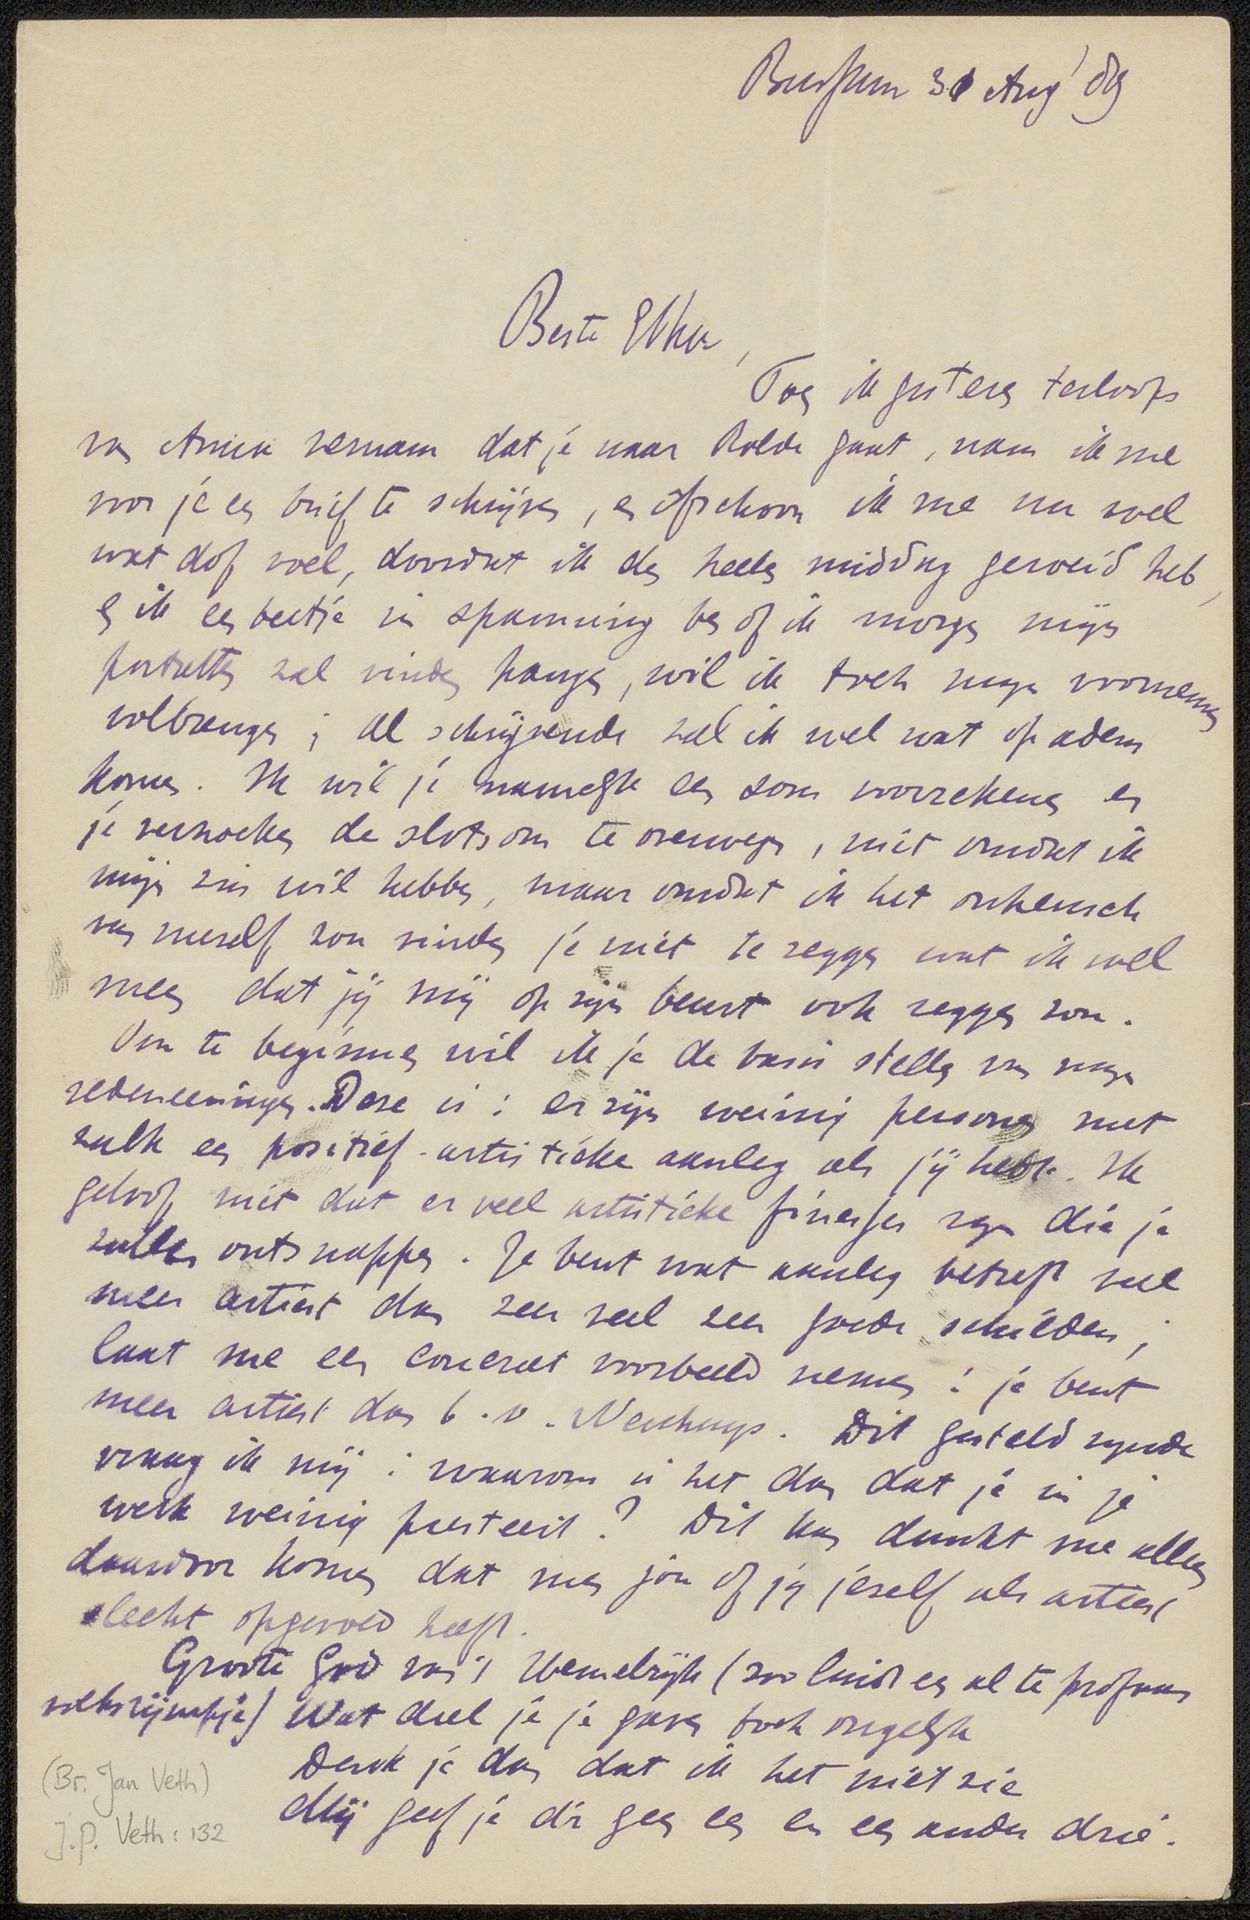 Bussum 31 Aug '89
Beste Ebba,
Toen ik gisteren terloops
van Anna vernam dat je naar Rolde gaat, nam ik me
voor je een brief te schrijven, en ofschoon ik me nu wel
wat dof voel, doordat ik den heelen middag geroeid heb,
en ik een beetje in spanning ben of ik morgen mijn
portretten zal vinden hangen, wil ik toch mijn voornemen
volbrengen; al schrijvende zal ik wel wat op adem
komen. Ik wil je namelijk een som voorrekenen en
je verzoeken de slotsom te overwegen, niet omdat ik
mijn zin wil hebben, maar omdat ik het onheusch
van mezelf zou vinden je niet te zeggen wat ik wel
meen dat jij mij op zijn beurt ook zeggen zou.
Om te beginnen wil ik je de basis stellen van mijn
redeneeringen. Deze is: er zijn weinig personen met
zulk een positief-artistieke aanleg als jij hebt. Ik
geloof niet dat er veel artistieke finesses zijn die je
zullen ontsnappen. Je bent wat aanleg betreft veel
meer artiest dan zeer veel zeer goede schilders;
laat me een concreet voorbeeld nemen: je bent
meer artiest dan b.v. Neuhuys. Dit gesteld zijnde
vraag ik mij: waarom is het dan dat je in je
werk weinig presteert? Dit kan dunkt me alleen
daardoor komen dat men jou of jij jezelf als artiest
slecht opgevoed heeft.
Groote God van 't Hemelrijk (zoo luidt een al te profaan
volksrijmpje) Wat deel je je gaven toch ongelijk
Denk je dan dat ik het niet zie
Mij geef je d'r geen een en een ander drie.
(Br. Jan Veth)
J.P. Veth: 132